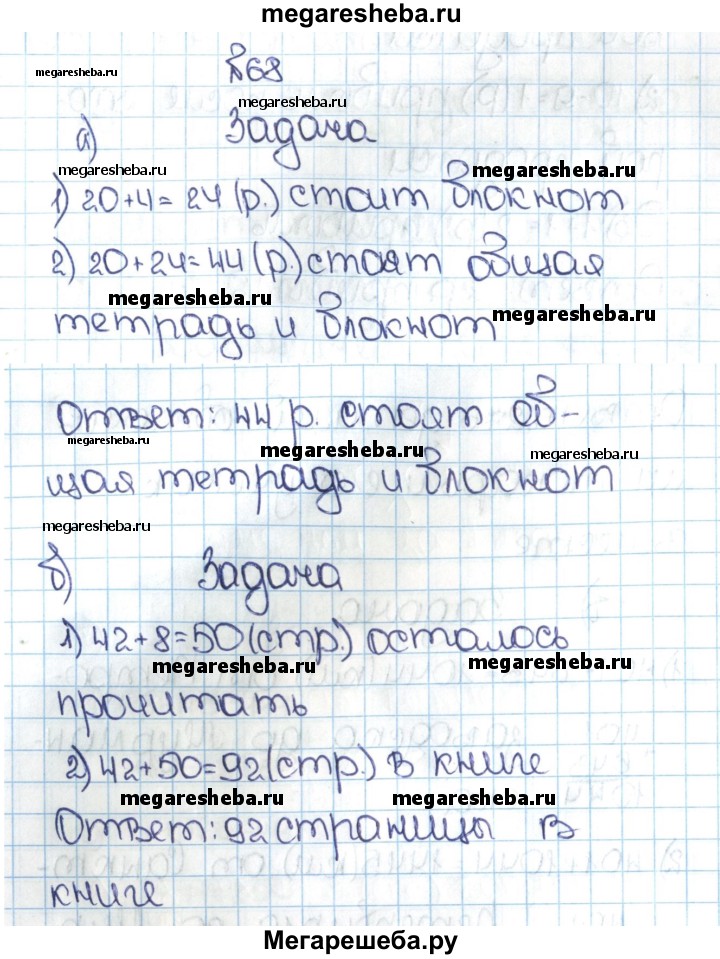 megaresheba.ru
№68
megaresheba.ru
megaresheba.ru
а) Задача
megaresheba.ru
megaresheba.ru
1) 20+4=24 (р.) стоит блокнот
2) 20+24=44 (р.) стоят общая
megaresheba.ru
megaresheba.ru
тетрадь и блокнот
Ответ: 44 р. стоят об-
megaresheba.ru
megaresheba.ru
megaresheba.ru
щая тетрадь и блокнот
megaresheba.ru
б) Задача
1) 42+8=50 (стр.) осталось
megaresheba.ru
megaresheba.ru
прочитать
2) 42+50=92 (стр.) в книге
megaresheba.ru
megaresheba.ru
Ответ: 92 страницы в
книге
Мегарешеба.ру